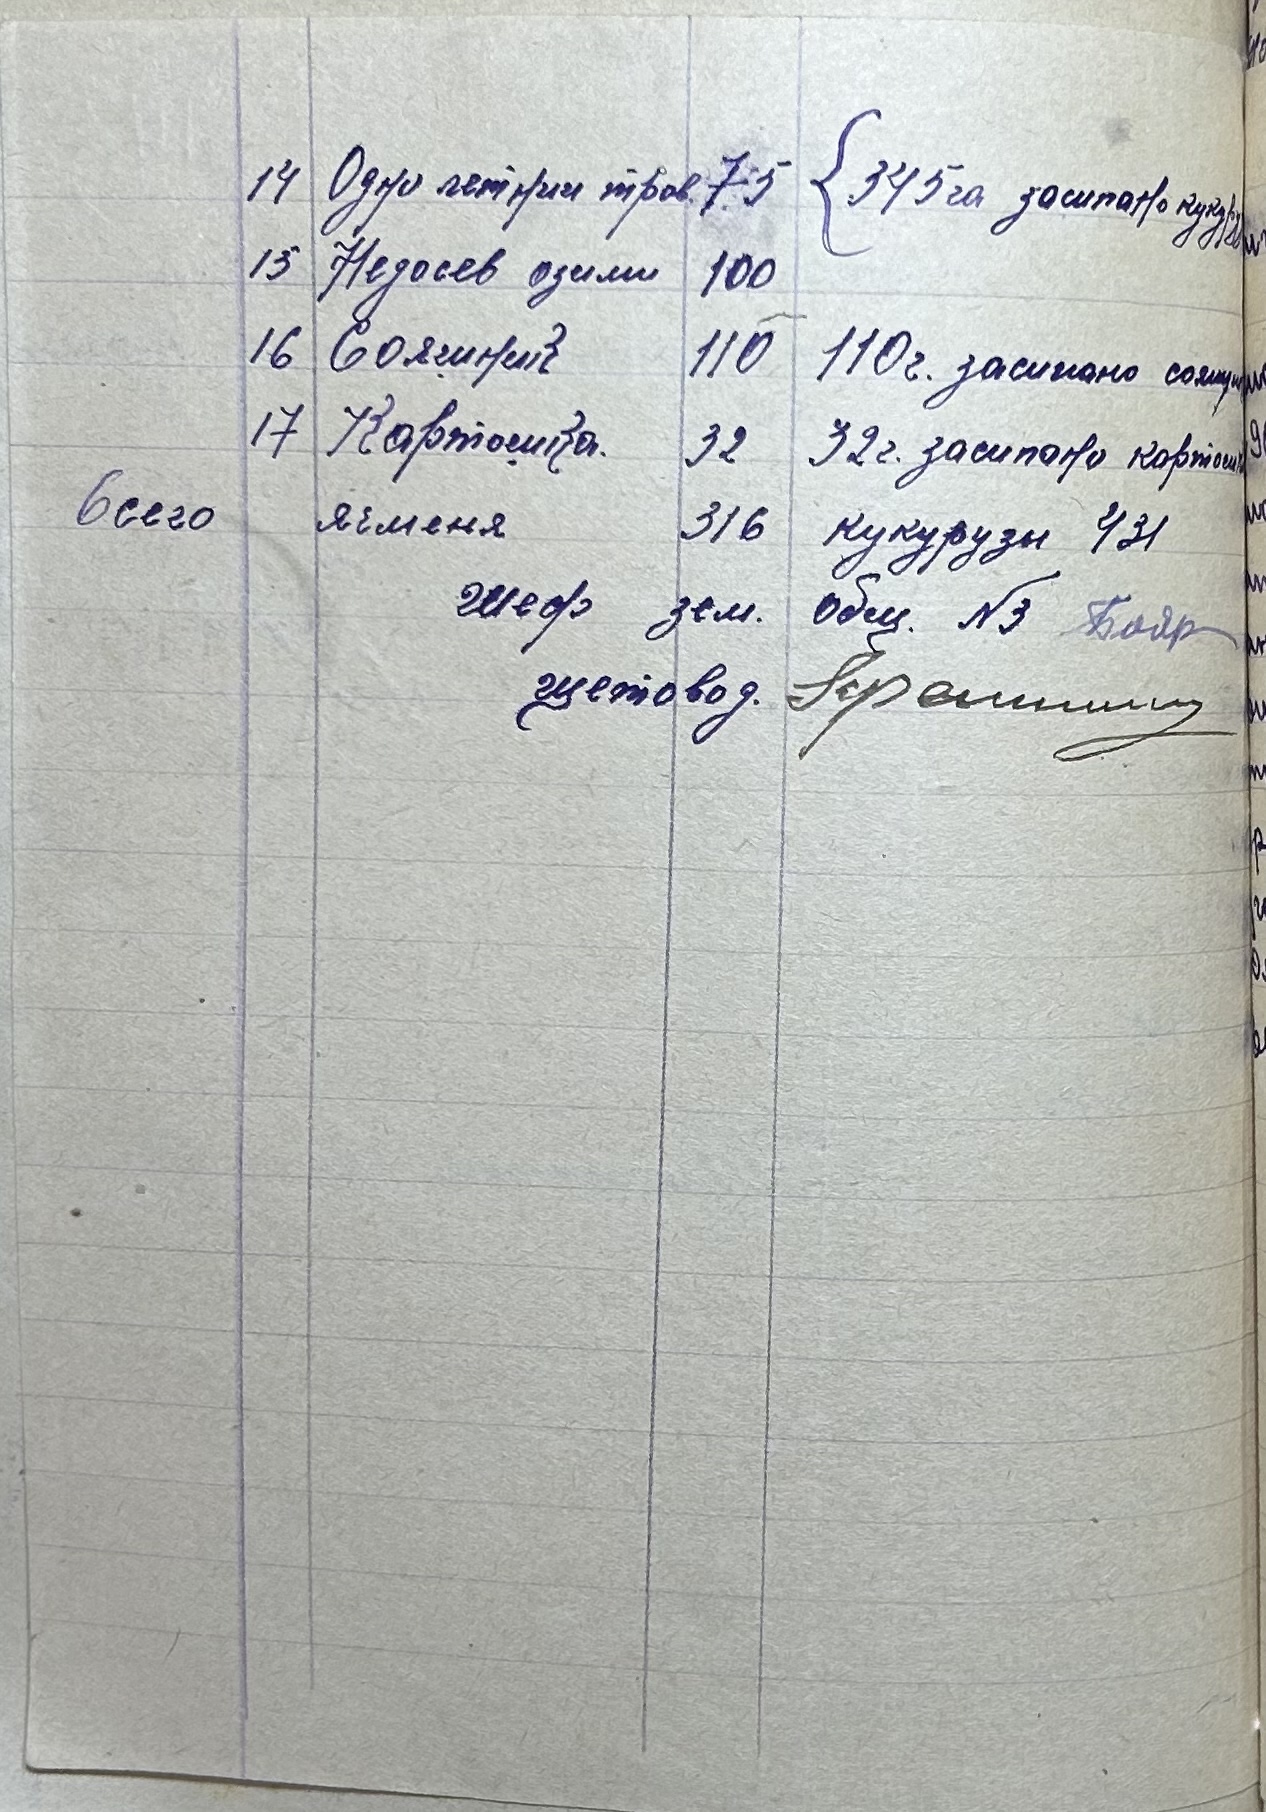 14 Одно летнии трав. 75 { 345 га засипано кукуруз
15 Недосев озими 100
16 Сояшник 110 110 г. засипано сояшн
17 Картошка. 32 32 г. засипано картошк
Всего ячменя 316 кукурузы 431
Шеф зем. Общ. №3 Бояр
Щетовод.